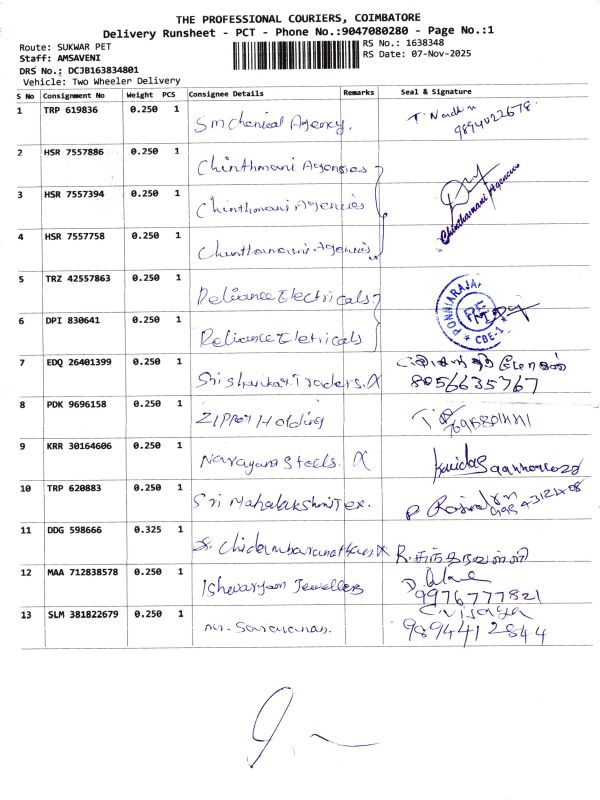 THE PROFESSIONAL COURIERS, COIMBATORE
Delivery Runsheet - PCT - Phone No.:9047080280 - Page No.:1
Route: SUKWAR PET
RS No.: 1638348
Staff: AMSAVENI
RS Date: 07-Nov-2025
DRS No.: DCJB163834801
Vehicle: Two Wheeler Delivery
S No Consignment No Weight PCS Consignee Details Remarks Seal & Signature
1 TRP 619836 0.250 1 SM Chemical Agency. 9894022678
2 HSR 7557886 0.250 1 Chinthmani Agencies
3 HSR 7557394 0.250 1 Chinthmani Agencies
Chinthamani Agencies
4 HSR 7557758 0.250 1 Chinthamani Agencies
5 TRZ 42557863 0.250 1 Reliance Electricals
PONNIARAJAP RE CBE-1
6 DPI 830641 0.250 1 Reliance Eletricals
7 EDQ 26401399 0.250 1 Sri Shankar Traders.
8056635767
8 PDK 9696158 0.250 1 Zipper Holding
9 KRR 30164606 0.250 1 Narayana Steels.
10 TRP 620883 0.250 1 Sri Mahalakshmi Tex.
11 DDG 598666 0.325 1 Chidambaranathan R.
12 MAA 712838578 0.250 1 Ishwaryam Jewellers
9976777821
13 SLM 381822679 0.250 1 Mr. Saravanan. C. Vijaya
9894412844